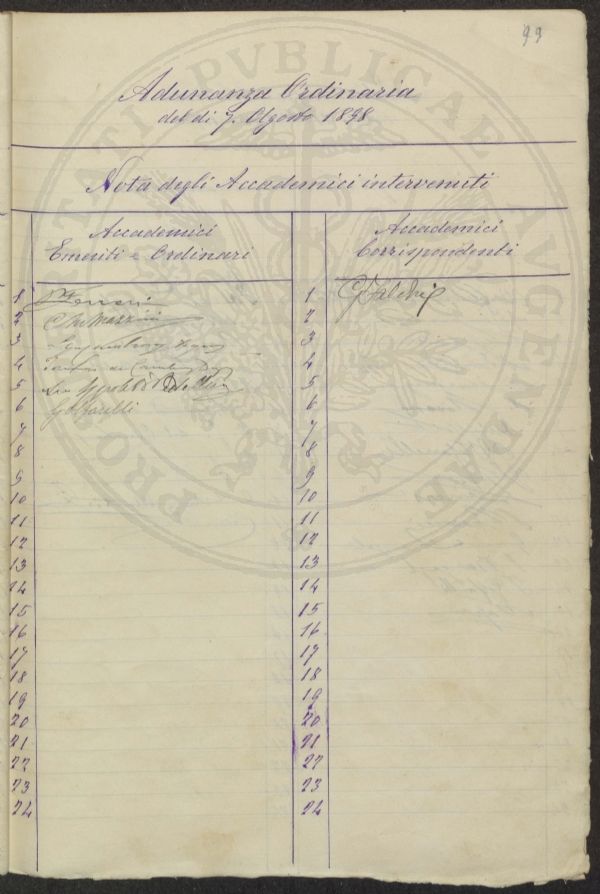 99
Adunanza Ordinaria
del dì 7. Agosto 1898
Nota degli Accademici intervenuti
Accademici
Emeriti e Ordinari
Accademici
Corrispondenti
1 Ferreri
2 Mazzini
3
4
5
6 Golfarelli
7
8
9
10
11
12
13
14
15
16
17
18
19
20
21
22
23
24
1 G. Falchi
2
3
4
5
6
7
8
9
10
11
12
13
14
15
16
17
18
19
20
21
22
23
24
PROSPERITATI PVBLICAE AVGENDAE